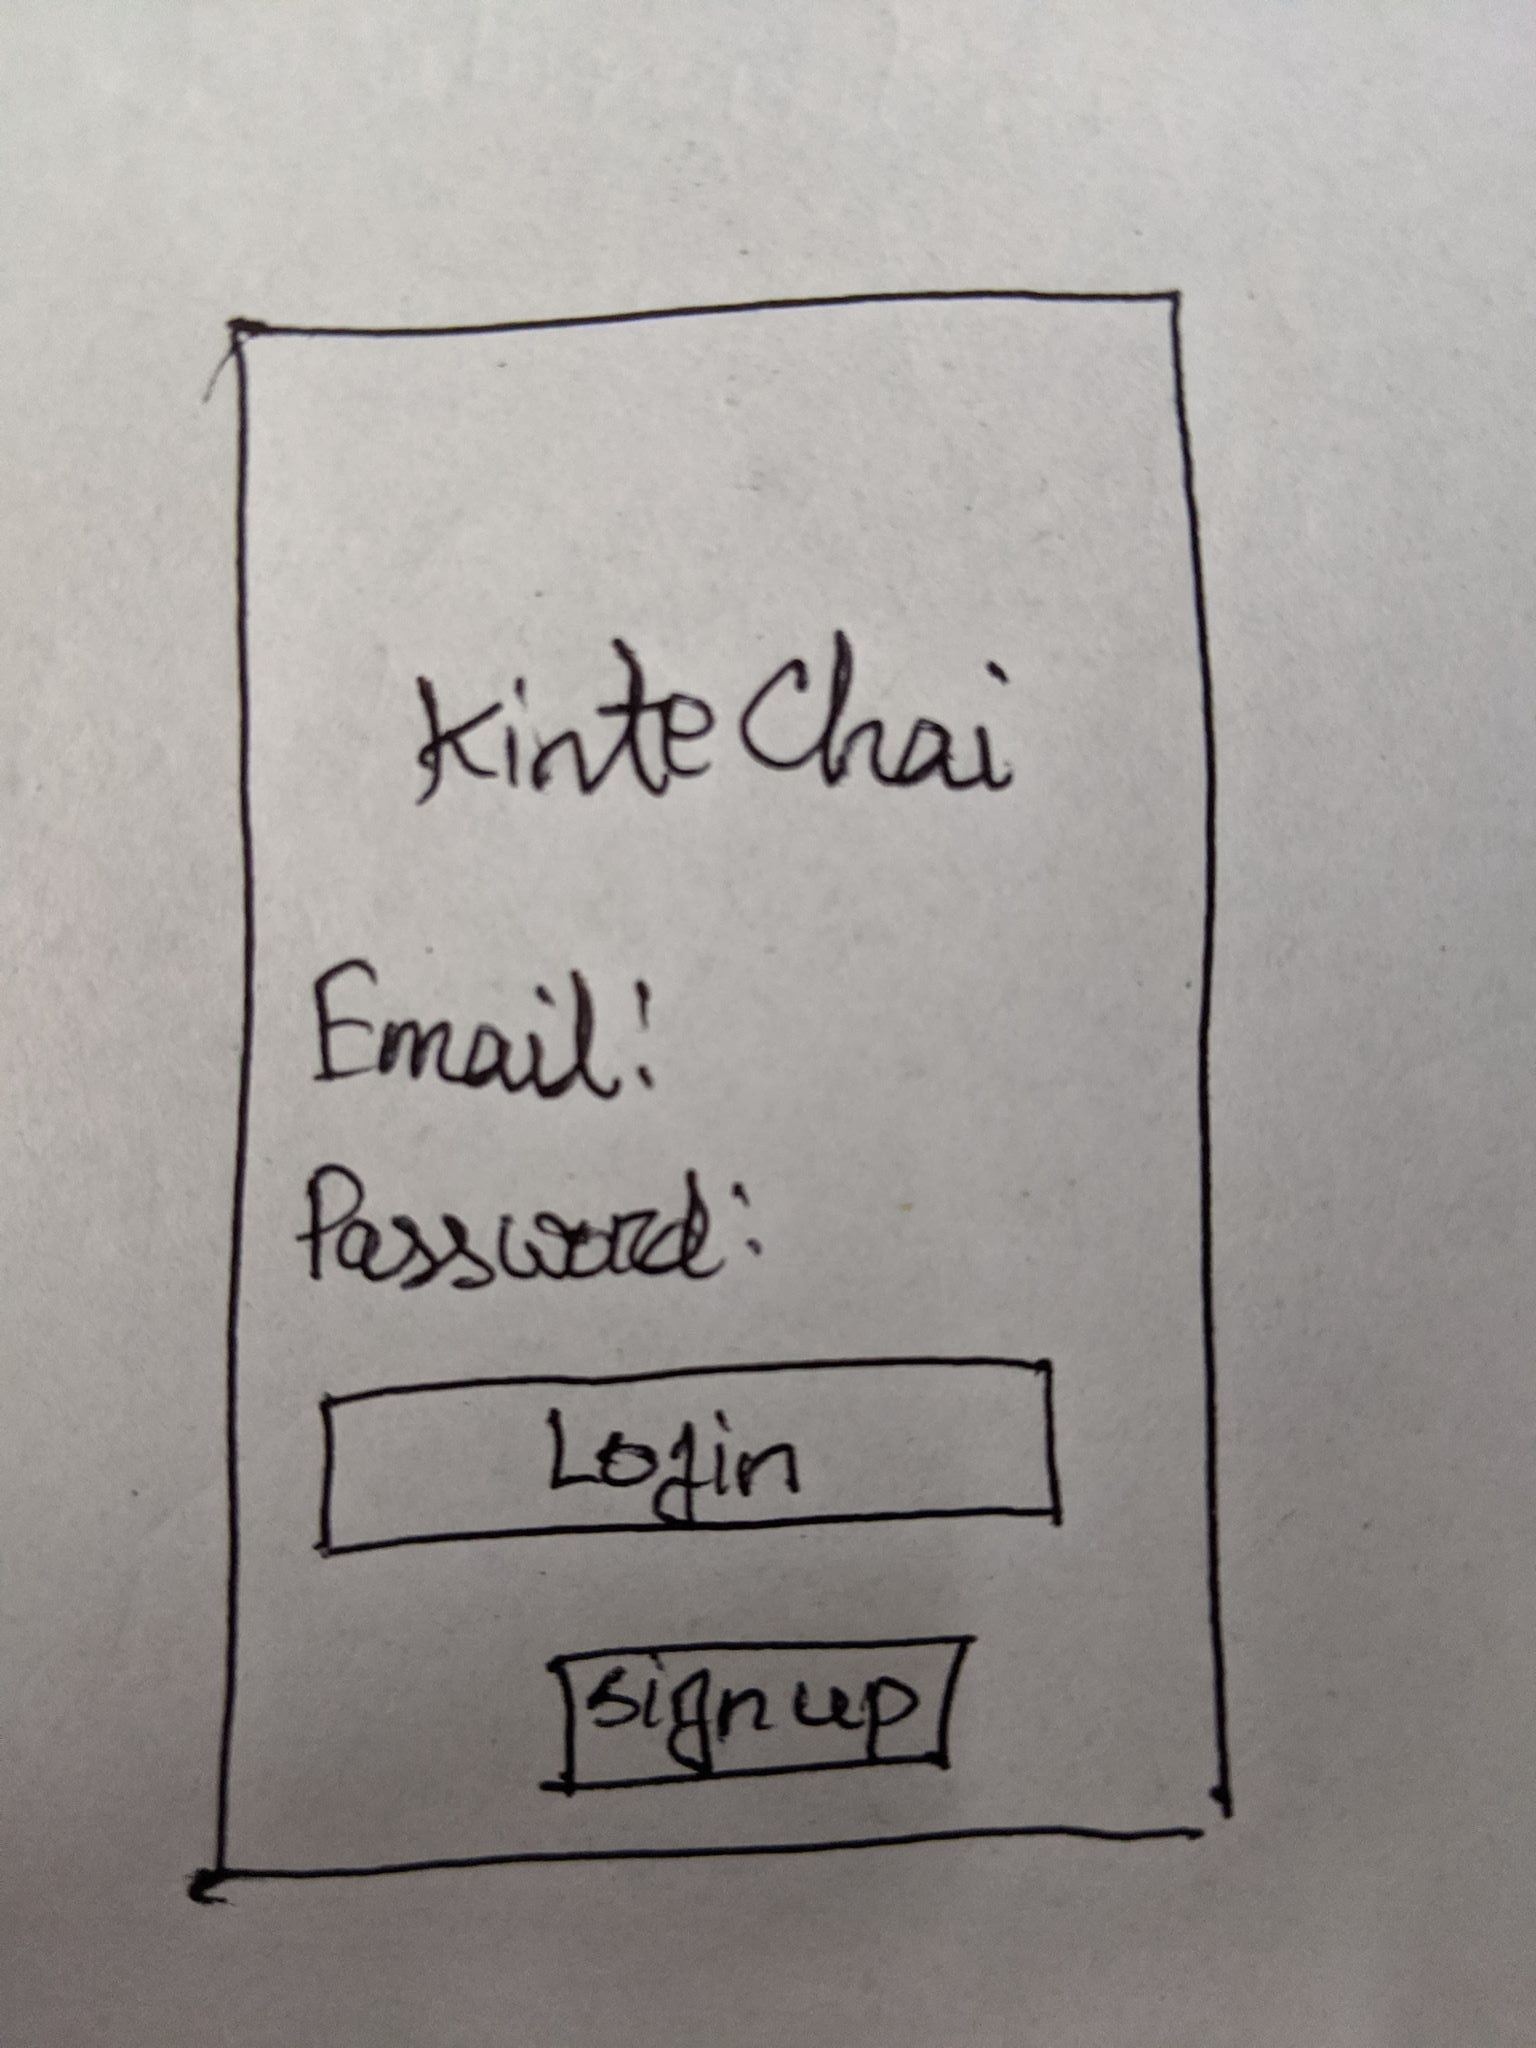 Kinte Chai
Email:
Password:
Login
signup